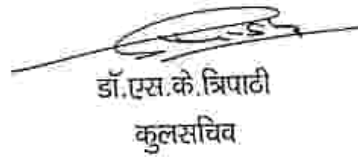 डॉ.एस.के.त्रिपाठी
कुलसचिव